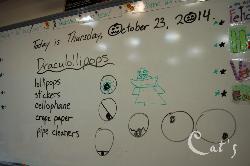 Today is Thursday, October 23, 2014
Dracublilipops
lollipops
stickers
cellophane
crape paper
pipe cleaners
Cat's